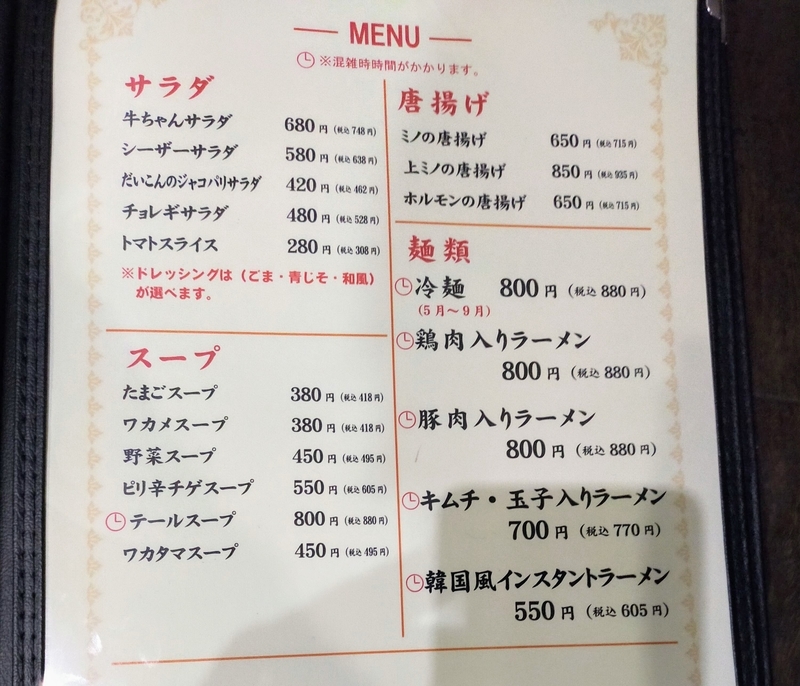 MENU
※混雑時時間がかかります。
サラダ
牛ちゃんサラダ 680円 (税込748円)
シーザーサラダ 580円 (税込638円)
だいこんのジャコパリサラダ 420円 (税込462円)
チョレギサラダ 480円 (税込528円)
トマトスライス 280円 (税込308円)
※ドレッシングは（ごま・青じそ・和風）
が選べます。
スープ
たまごスープ 380円 (税込418円)
ワカメスープ 380円 (税込418円)
野菜スープ 450円 (税込495円)
ピリ辛チゲスープ 550円 (税込605円)
テールスープ 800円 (税込880円)
ワカタマスープ 450円 (税込495円)
唐揚げ
ミノの唐揚げ 650円 (税込715円)
上ミノの唐揚げ 850円 (税込935円)
ホルモンの唐揚げ 650円 (税込715円)
麺類
冷麺 800円 (税込880円)
(5月〜9月)
鶏肉入りラーメン
800円 (税込880円)
豚肉入りラーメン
800円 (税込880円)
キムチ・玉子入りラーメン
700円 (税込770円)
韓国風インスタントラーメン
550円 (税込605円)